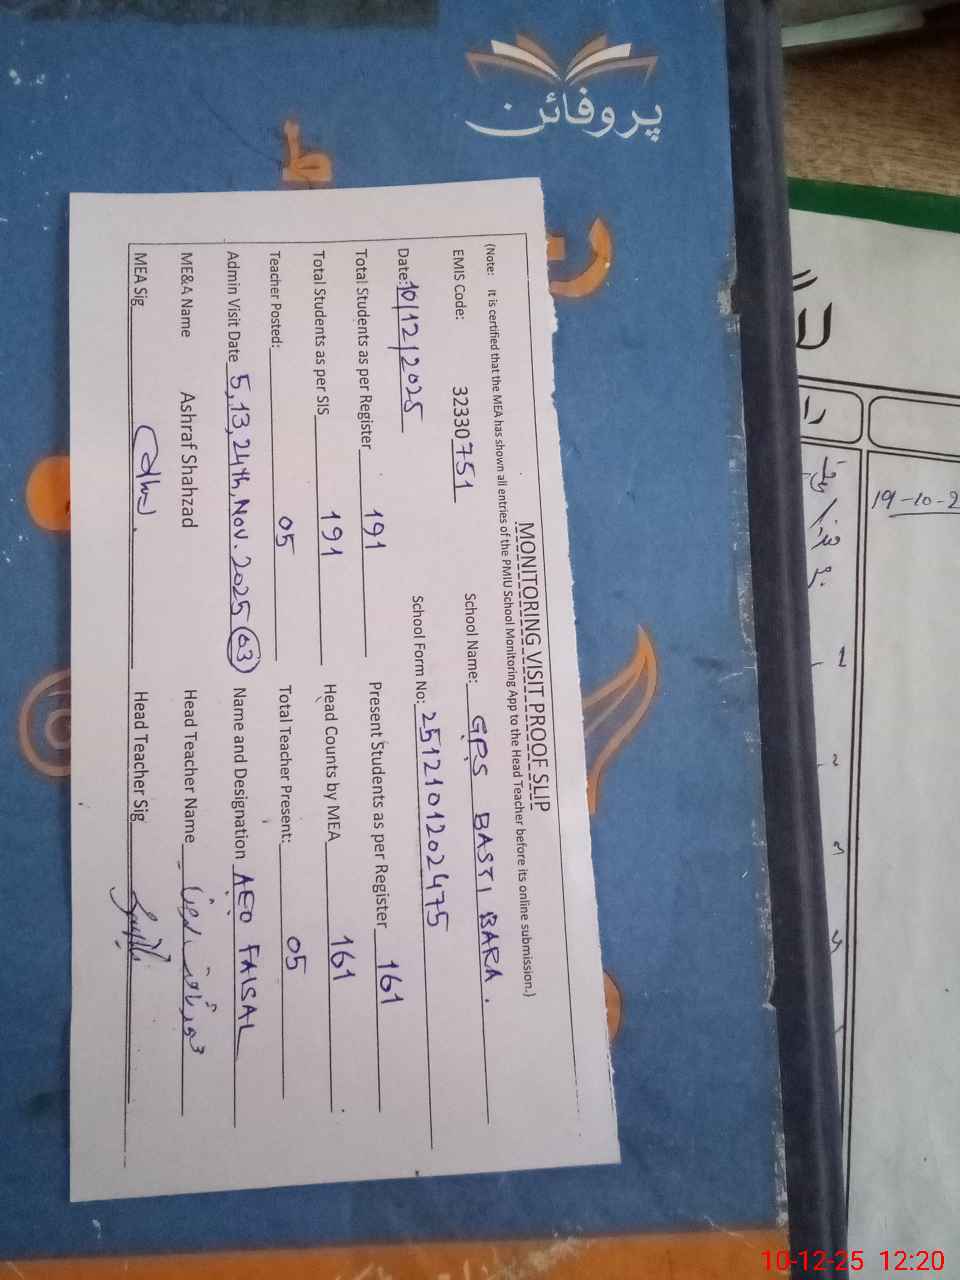 پروفائن
MONITORING VISIT PROOF SLIP
(Note: It is certified that the MEA has shown all entries of the PMIU School Monitoring App to the Head Teacher before its online submission.)
EMIS Code: 32330751 School Name: GPS BASTI BARA.
Date: 10/12/2025 School Form No: 251210120 2475
Total Students as per Register 191 Present Students as per Register 161
Total Students as per SIS 191 Head Counts by MEA 161
Teacher Posted: 05 Total Teacher Present: 05
Admin Visit Date 5,13,24th, Nov. 2025 (03) Name and Designation AEO FAISAL
ME&A Name Ashraf Shahzad Head Teacher Name
MEA Sig Head Teacher Sig
19-10-2
10-12-25 12:20